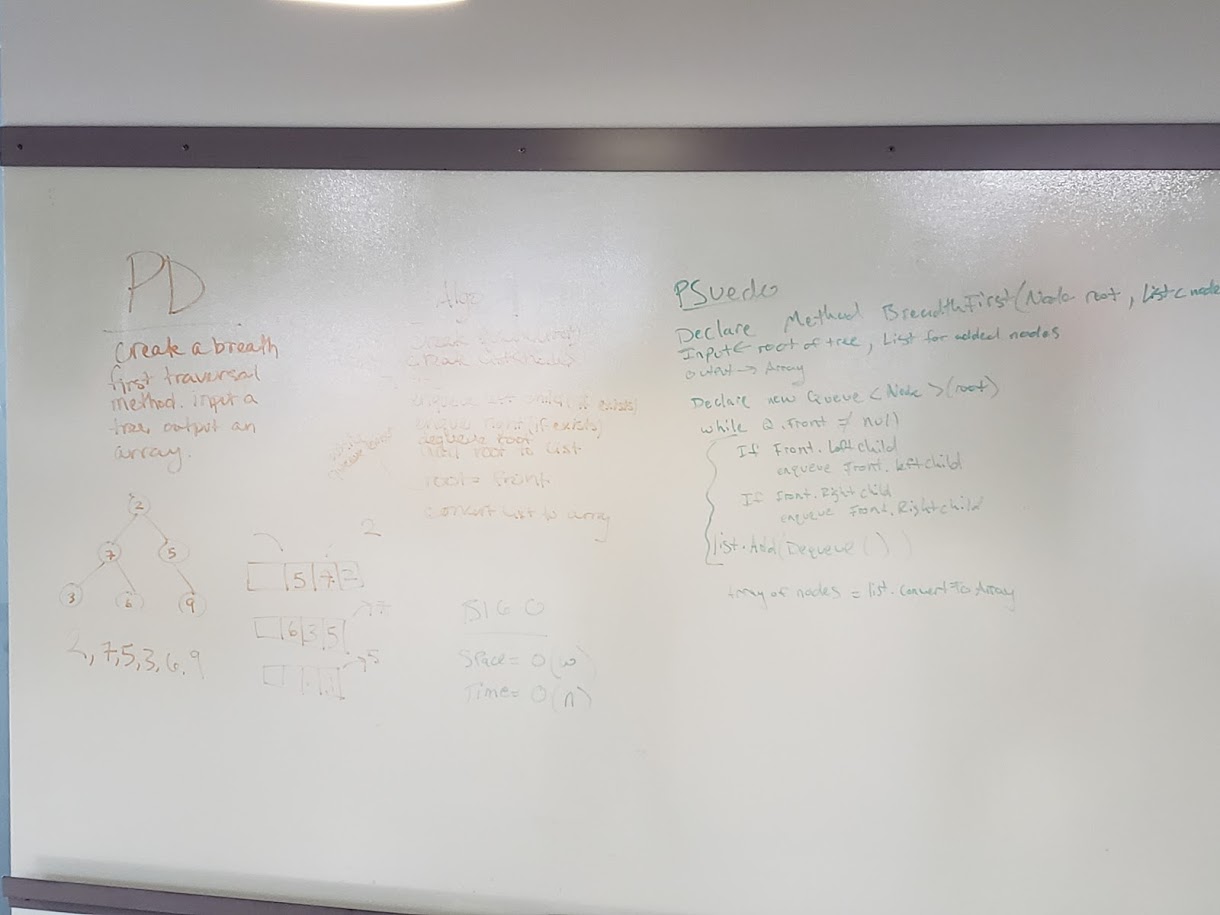 PD
Create a breath
first traversal
method. input a
tree output an
array.
2
7
5
3
6
9
2, 7, 5, 3, 6, 9
Algo
create
enqueue left child (if exists)
enqueue right (if exists)
dequeue root
add root to list
root = front
convert list to array
2
5 7 2
7
6 3 5
5
BIG O
Space = O(w)
Time = O(n)
PSuedo
Declare Method BreadthFirst(Node root, List<node
Input ← root of tree, List for added nodes
output → Array
Declare new Queue <Node>(root)
while Q.Front ≠ null
If Front.Leftchild
enqueue Front.leftchild
If Front.Rightchild
enqueue Front.Rightchild
list.Add(Dequeue())
Array of nodes = list.ConvertToArray